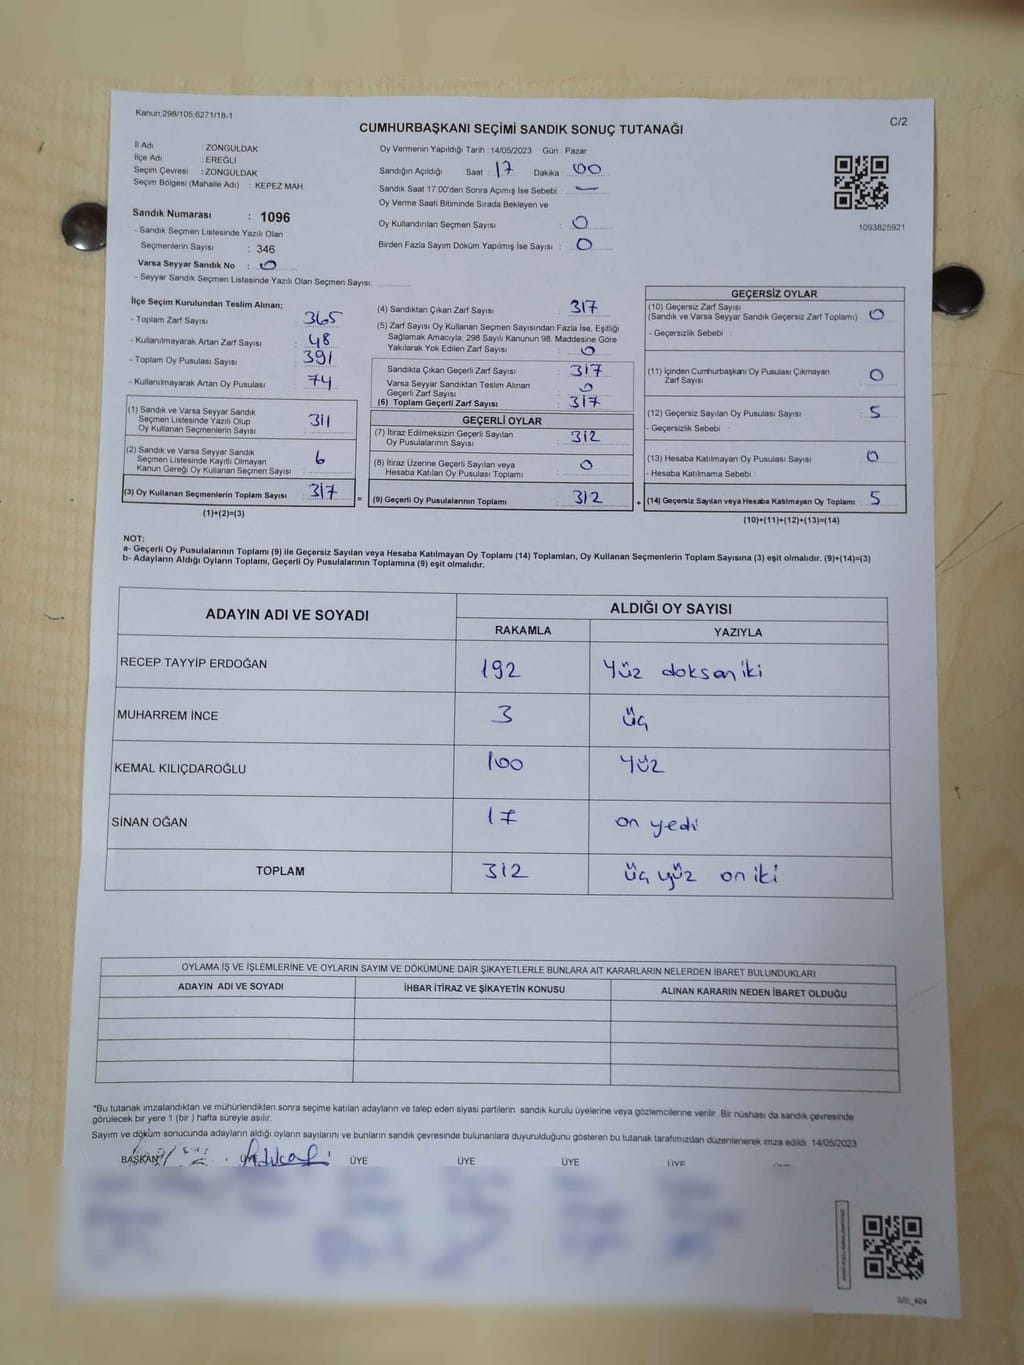 Kanun;298/105;6271/18-1
C/2
CUMHURBAŞKANI SEÇİMİ SANDIK SONUÇ TUTANAĞI
İl Adı : ZONGULDAK
İlçe Adı : EREĞLİ
Seçim Çevresi : ZONGULDAK
Seçim Bölgesi (Mahalle Adı) : KEPEZ MAH.
Sandık Numarası : 1096
- Sandık Seçmen Listesinde Yazılı Olan
Seçmenlerin Sayısı : 346
Varsa Seyyar Sandık No : 0
- Seyyar Sandık Seçmen Listesinde Yazılı Olan Seçmen Sayısı:
Oy Vermenin Yapıldığı Tarih :14/05/2023 Gün : Pazar
Sandığın Açıldığı Saat : 17 Dakika : 00
Sandık Saat 17:00'den Sonra Açımış İse Sebebi : —
Oy Verme Saati Bitiminde Sırada Bekleyen ve
Oy Kullandırılan Seçmen Sayısı : 0
Birden Fazla Sayım Döküm Yapılmış İse Sayısı : 0
1093825921
İlçe Seçim Kurulundan Teslim Alınan;
- Toplam Zarf Sayısı : 365
- Kullanılmayarak Artan Zarf Sayısı : 48
- Toplam Oy Pusulası Sayısı : 391
- Kullanılmayarak Artan Oy Pusulası : 74
(1) Sandık ve Varsa Seyyar Sandık
Seçmen Listesinde Yazılı Olup
Oy Kullanan Seçmenlerin Sayısı : 311
(2) Sandık ve Varsa Seyyar Sandık
Seçmen Listesinde Kayıtlı Olmayan
Kanun Gereği Oy Kullanan Seçmen Sayısı : 6
(3) Oy Kullanan Seçmenlerin Toplam Sayısı : 317
(1)+(2)=(3)
(4) Sandıktan Çıkan Zarf Sayısı : 317
(5) Zarf Sayısı Oy Kullanan Seçmen Sayısından Fazla İse, Eşitliği
Sağlamak Amacıyla, 298 Sayılı Kanunun 98. Maddesine Göre
Yakılarak Yok Edilen Zarf Sayısı : 0
Sandıkta Çıkan Geçerli Zarf Sayısı : 317
Varsa Seyyar Sandıktan Teslim Alınan
Geçerli Zarf Sayısı : 0
(6) Toplam Geçerli Zarf Sayısı : 317
GEÇERLİ OYLAR
(7) İtiraz Edilmeksizin Geçerli Sayılan
Oy Pusulalarının Sayısı : 312
(8) İtiraz Üzerine Geçerli Sayılan veya
Hesaba Katılan Oy Pusulası Toplamı : 0
= (9) Geçerli Oy Pusulalarının Toplamı : 312
GEÇERSİZ OYLAR
(10) Geçersiz Zarf Sayısı
(Sandık ve Varsa Seyyar Sandık Geçersiz Zarf Toplamı) : 0
- Geçersizlik Sebebi :
(11) İçinden Cumhurbaşkanı Oy Pusulası Çıkmayan
Zarf Sayısı : 0
(12) Geçersiz Sayılan Oy Pusulası Sayısı : 5
- Geçersizlik Sebebi :
(13) Hesaba Katılmayan Oy Pusulası Sayısı : 0
- Hesaba Katılmama Sebebi :
+ (14) Geçersiz Sayılan veya Hesaba Katılmayan Oy Toplamı : 5
(10)+(11)+(12)+(13)=(14)
NOT:
a- Geçerli Oy Pusulalarının Toplamı (9) ile Geçersiz Sayılan veya Hesaba Katılmayan Oy Toplamı (14) Toplamları, Oy Kullanan Seçmenlerin Toplam Sayısına (3) eşit olmalıdır. (9)+(14)=(3)
b- Adayların Aldığı Oyların Toplamı, Geçerli Oy Pusulalarının Toplamına (9) eşit olmalıdır.
ADAYIN ADI VE SOYADI ALDIĞI OY SAYISI
RAKAMLA YAZIYLA
RECEP TAYYİP ERDOĞAN 192 Yüz doksan iki
MUHARREM İNCE 3 üç
KEMAL KILIÇDAROĞLU 100 Yüz
SİNAN OĞAN 17 on yedi
TOPLAM 312 üç yüz on iki
OYLAMA İŞ VE İŞLEMLERİNE VE OYLARIN SAYIM VE DÖKÜMÜNE DAİR ŞİKAYETLERLE BUNLARA AİT KARARLARIN NELERDEN İBARET BULUNDUKLARI
ADAYIN ADI VE SOYADI İHBAR İTİRAZ VE ŞİKAYETİN KONUSU ALINAN KARARIN NEDEN İBARET OLDUĞU
*Bu tutanak imzalandıktan ve mühürlendikten sonra seçime katılan adayların ve talep eden siyasi partilerin sandık kurulu üyelerine veya gözlemcilerine verilir. Bir nüshası da sandık çevresinde
görülecek bir yere 1 (bir ) hafta süreyle asılır.
Sayım ve döküm sonucunda adayların aldığı oyların sayılarını ve bunların sandık çevresinde bulunanlara duyurulduğunu gösteren bu tutanak tarafımızdan düzenlenerek imza edildi. 14/05/2023
BAŞKAN ÜYE ÜYE ÜYE ÜYE ÜYE